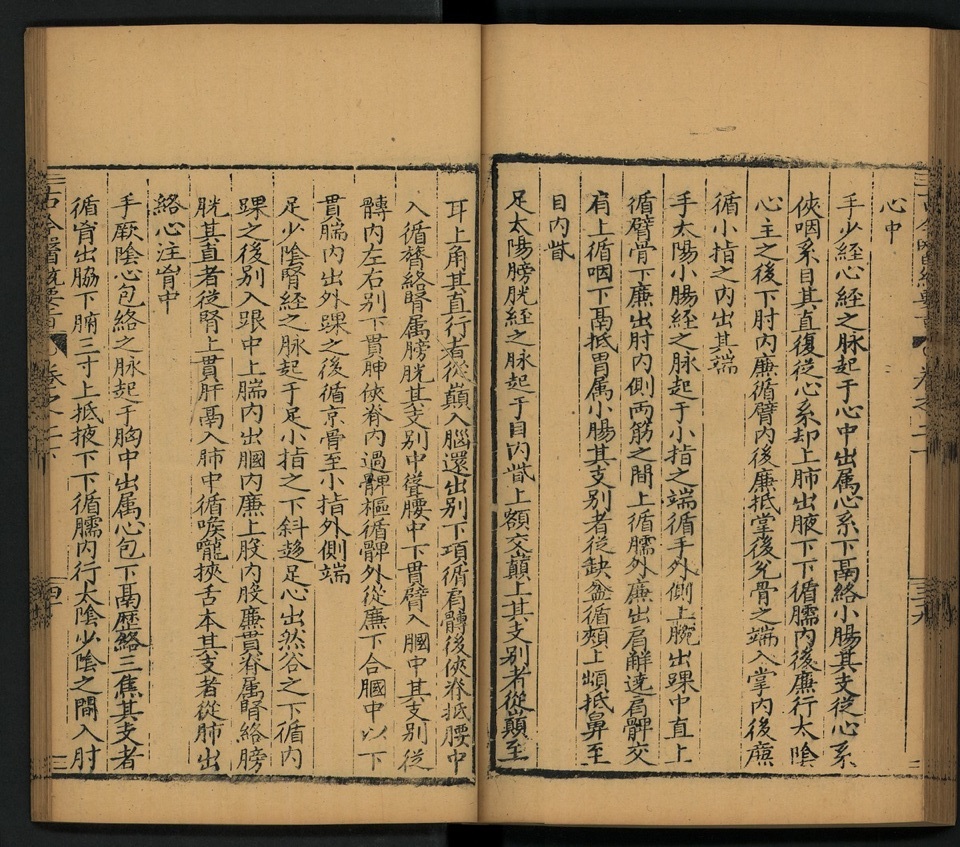 心中
手少経心経之脉起于心中出属心系下鬲絡小腸其支従心系
俠咽系目其直復従心系却上肺出腋下下循臑内後廉行太陰
心主之後下肘内廉循臂内後廉抵掌後兊骨之端入掌内後廉
循小指之内出其端
手太陽小腸経之脉起于小指之端循手外側上腕出踝中直上
循臂骨下廉出肘内側両筋之間上循臑外廉出肩觧遶肩髀交
肩上循咽下鬲抵胃属小腸其支别者従缺盆循頰上䪼抵鼻至
目内眥
足太陽膀胱経之脉起于目内眥上額交巔上其支别者從巔至
耳上角其直行者從巔入腦還出别下項循肩髆後俠脊抵腰中
入循膂絡腎属膀胱其支别中腰中下貫臂入膕中其支别従
髆内左右别下貫胂俠脊内過髀樞循髀外從廉下合膕中以下
貫腨内出外踝之後循京骨至小指外側端
足少陰腎経之脉起于足小指之下斜趍足心出然谷之下循内
踝之後别入跟中上腨内出膕内廉上股内股廉貫脊属腎絡膀
胱其直者從腎上貫肝鬲入肺中循喉嚨挾舌本其支者從肺出
絡心注肓中
手厥陰心包絡之脉起于胸中出属心包下鬲歴絡三焦其支者
循肓出脇下腑三寸上抵掖下下循臑内行太陰少陰之間入肘
古今醫統 卷之二
四十
三九